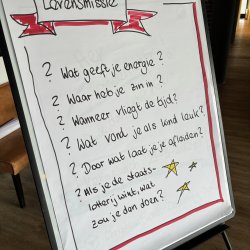 Levensmissie
? Wat geeft je energie?
? Waar heb je zin in?
? Wanneer vliegt de tijd?
? Wat vond je als kind leuk?
? Door wat laat je je afleiden?
? Als je de staats-
loterij wint, wat
zou je dan doen?